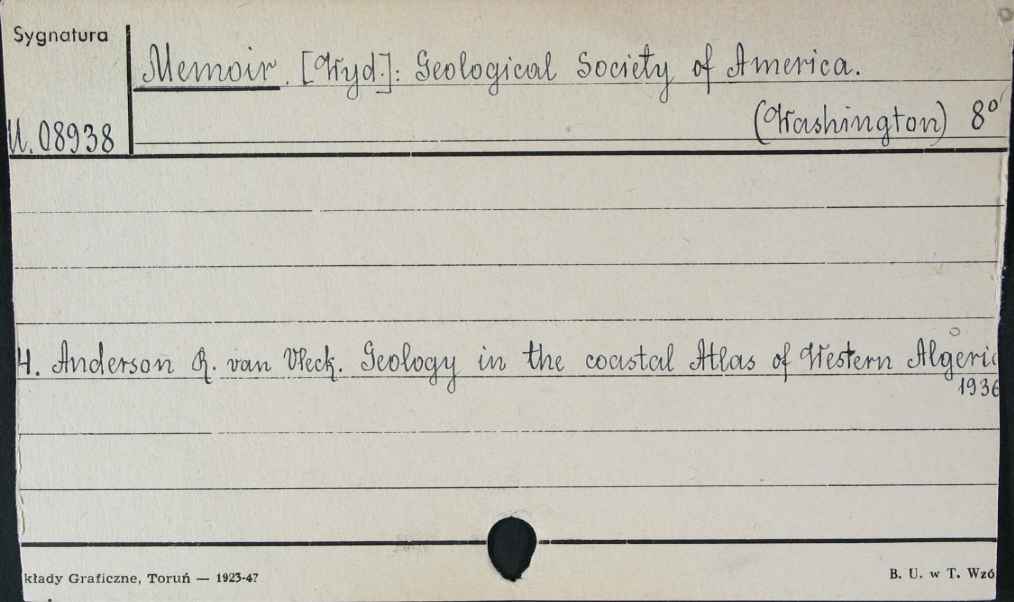 Sygnatura
Memoir. [Wyd.]: Geological Society of America.
(Washington) 8°
U. 08938
4. Anderson R. van Vleck. Geology in the coastal Atlas of Western Algeria
1936
kłady Graficzne, Toruń — 1923-47
B. U. w T. Wzó